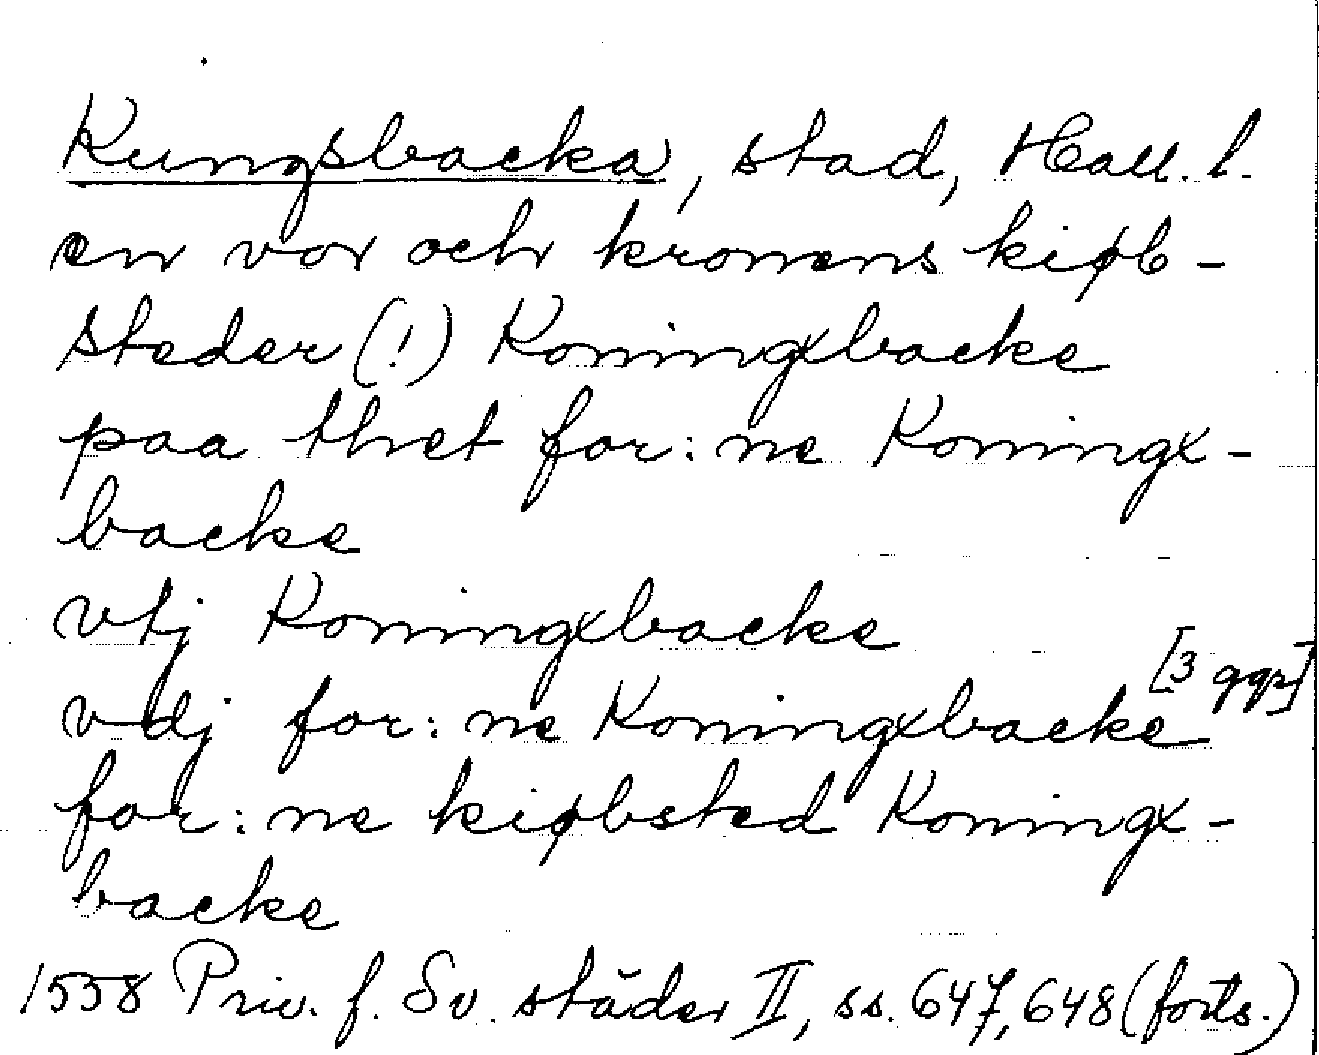 Kungsbacka, stad, Hall. l.
en vor och kronens kiøb-
steder (!) Koningxbacke
paa thet for: ne Koningx-
backe
vtj Koningxbacke
[3 ggr]
vdj for: ne Koningxbacke
for: ne kiøbsted Koningx-
backe
1558 Priv. f. Sv. städer II, ss. 647, 648 (forts.)